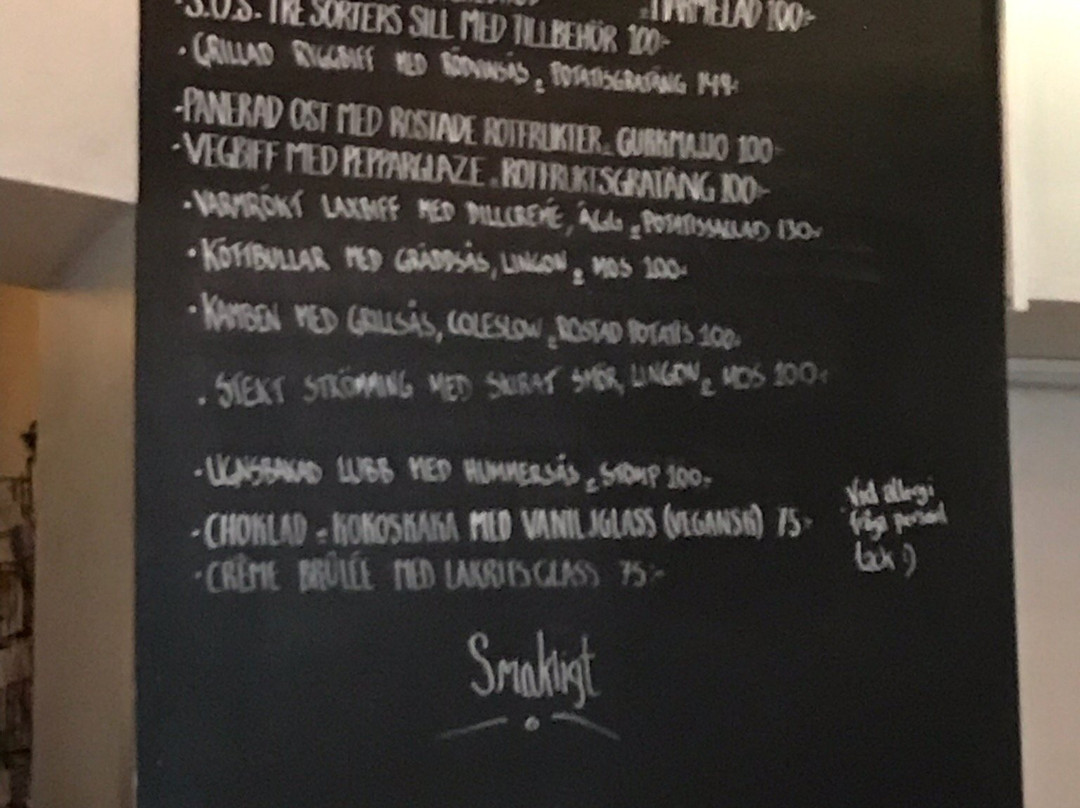 MARMELAD 100:-
·S.O.S - TRE SORTERS SILL MED TILLBEHÖR 100:-
·GRILLAD RYGGBIFF MED RÖDVINSÅS & POTATISGRATÄNG 149:-
·PANERAD OST MED ROSTADE ROTFRUKTER & GURKMAJJO 100:-
·VEGBIFF MED PEPPARGLAZE & ROTFRUKTSGRATÄNG 100:-
·VARMRÖKT LAXBIFF MED DILLCREMÉ, ÄGG & POTATISSALLAD 130:-
·KÖTTBULLAR MED GRÄDDSÅS, LINGON & MOS 100:-
·KAMBEN MED GRILLSÅS, COLESLOW & ROSTAD POTATIS 100:-
·STEKT STRÖMMING MED SKIRAT SMÖR, LINGON & MOS 100:-
·UGNSBAKAD LUBB MED HUMMERSÅS & STOMP 100:-
·CHOKLAD & KOKOSKAKA MED VANILJGLASS (VEGANSK) 75:-
·CRÈME BRÛLÉE MED LAKRITSGLASS 75:-
Vid allergi
fråga personal
tack :)
Smakligt